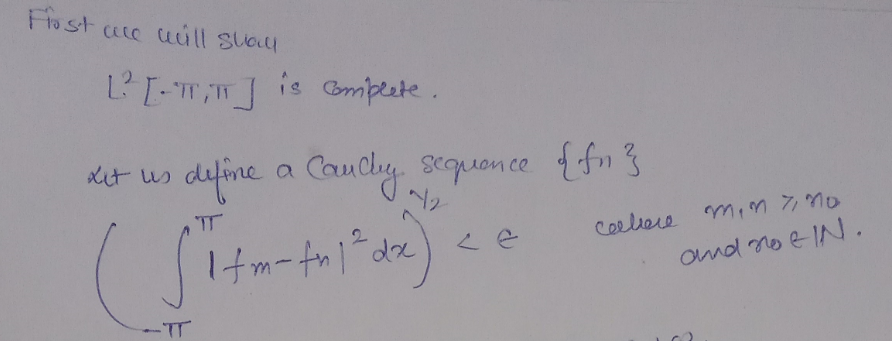 First we will show
L² [-π, π] is Complete.
Let us define a Cauchy sequence {fn}
( ∫_{-π}^{π} |fm - fn|² dx )^{1/2} < ε where m, n ≥ no
and no ∈ IN.